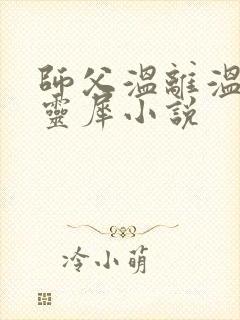 師父溫離溫
靈犀小說
冷小萌